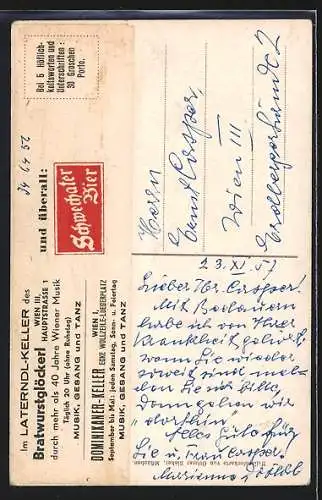 Bei 5 Höflich-
keitsworten und
Unterschriften:
30 Groschen
Porto.
Im LATERNDL-KELLER des
WIEN III,
Bratwurstglöckerl HAUPTSTRASSE 1
durch mehr als 40 Jahre Wiener Musik
Täglich 20 Uhr (ohne Ruhetag)
MUSIK, GESANG und TANZ
und überall:
Schwechater
Bier
WIEN I,
DOMINIKANER-KELLER ECKE WOLLZEILE-LUEGERPLATZ
September bis Mai: jeden Samstag, Sonn- u. Feiertag
MUSIK, GESANG und TANZ
Herrn
Ernst Casper,
Wien III
Erdbergerlände 2
23. XI. 57
Lieber Hr. Casper!
Mit Bedauern
habe ich von Ihrer
Krankheit gehört,
wann Sie wieder
soweit sind melden
Sie sich bitte,
dann gehen wir
"dorthin"
Alles Gute für
Sie u. Frau Casper.
Marianne